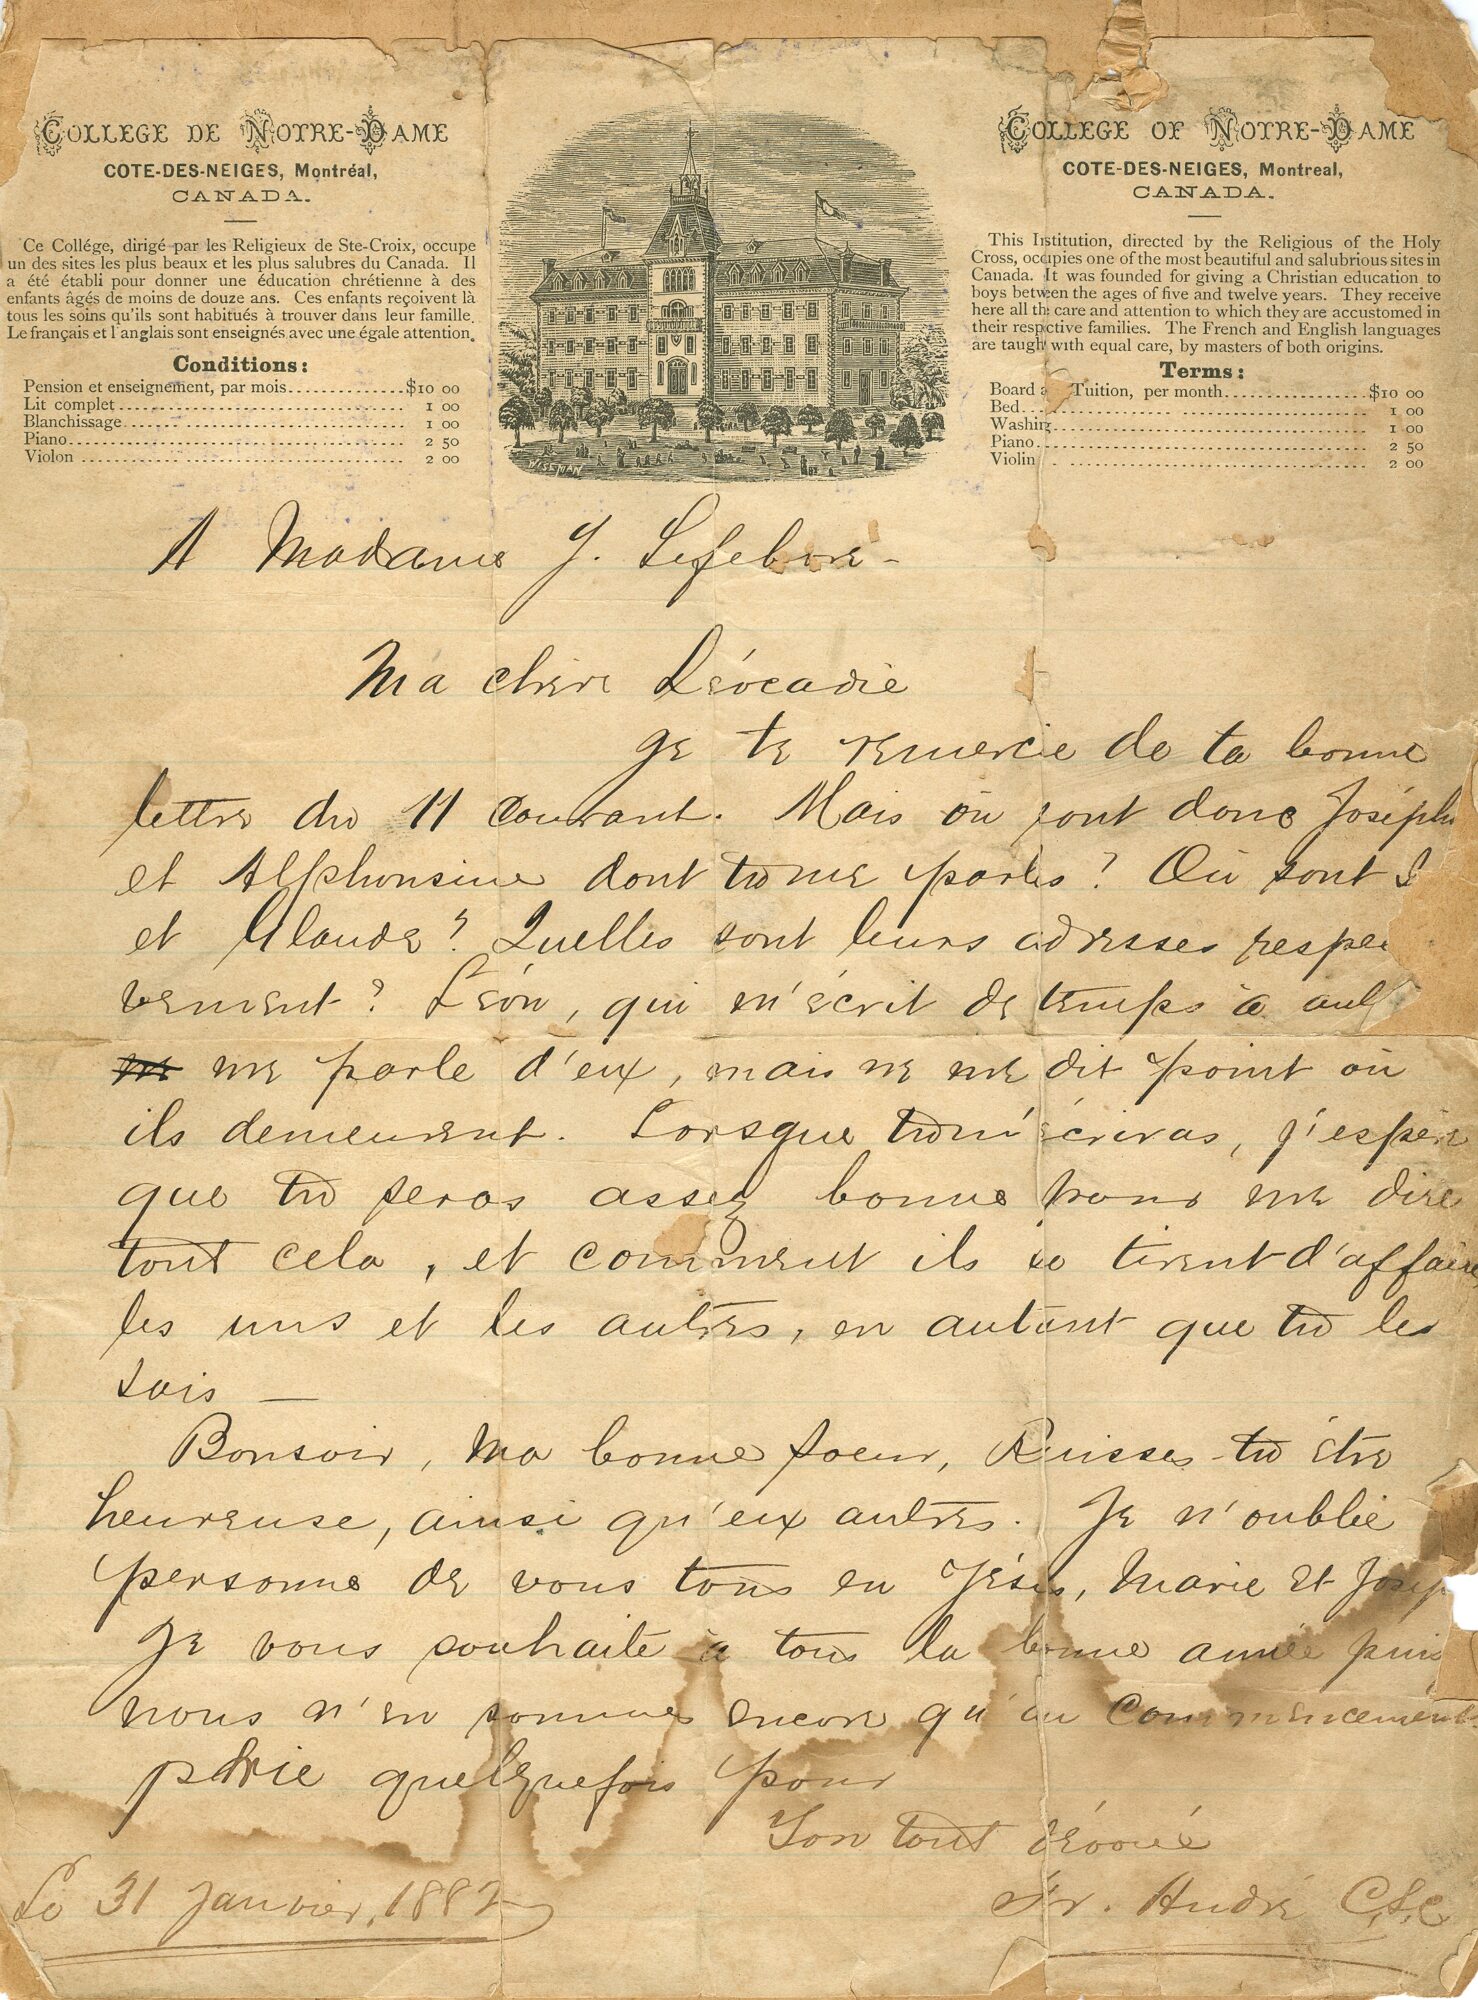 COLLEGE DE NOTRE-DAME
COTE-DES-NEIGES, Montréal,
CANADA.
Ce Collége, dirigé par les Religieux de Ste-Croix, occupe
un des sites les plus beaux et les plus salubres du Canada. Il
a été établi pour donner une éducation chrétienne à des
enfants âgés de moins de douze ans. Ces enfants reçoivent là
tous les soins qu'ils sont habitués à trouver dans leur famille.
Le français et l'anglais sont enseignés avec une égale attention.
Conditions:
Pension et enseignement, par mois $10 00
Lit complet 1 00
Blanchissage 1 00
Piano 2 50
Violon 2 00
COLLEGE OF NOTRE-DAME
COTE-DES-NEIGES, Montreal,
CANADA.
This Institution, directed by the Religious of the Holy
Cross, occupies one of the most beautiful and salubrious sites in
Canada. It was founded for giving a Christian education to
boys between the ages of five and twelve years. They receive
here all the care and attention to which they are accustomed in
their respective families. The French and English languages
are taught with equal care, by masters of both origins.
Terms:
Board a Tuition, per month $10 00
Bed 1 00
Washing 1 00
Piano 2 50
Violin 2 00
A Madame J. Lefebvre -
Ma chère Léocadie
Je te remercie de ta bonne
lettre du 11 courant. Mais où sont donc Joseph
et Alphonsine dont tu me parles? Où sont
et Claude? Quelles sont leurs adresses respec
vement? Léon, qui m'écrit de temps à aut
me parle d'eux, mais ne me dit point où
ils demeurent. Lorsque tu m'écriras, j'espère
que tu seras assez bonne pour me dire
tout cela, et comment ils se tirent d'affaire
les uns et les autres, en autant que tu le
sais —
Bonsoir, ma bonne soeur, Puisses-tu être
heureuse, ainsi qu'eux autres. Je n'oublie
personne de vous tous en Jésus, Marie et Josep
Je vous souhaite à tous la bonne année puis
nous n'en sommes encore qu'au commencement
prie quelquefois pour
Ton tout dévoué
Le 31 Janvier, 1882
Fr. André C.S.C.